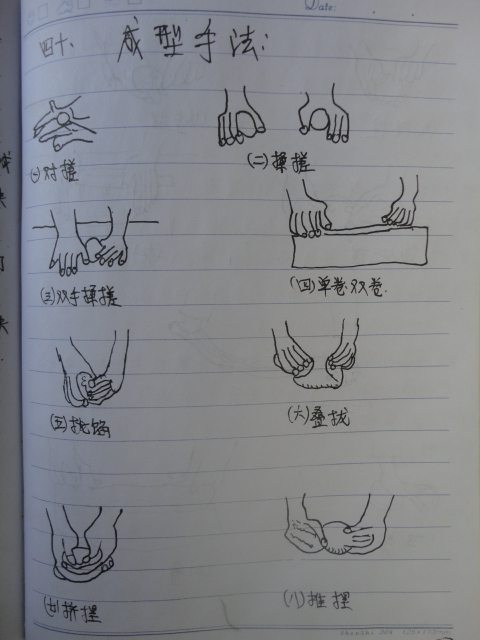 Date
四十、成型手法:
(一)对搓
(二)揉搓
(三)双手揉搓
(四)单卷双卷.
(五)拢馅
(六)叠拢
(七)挤捏
(八)推捏